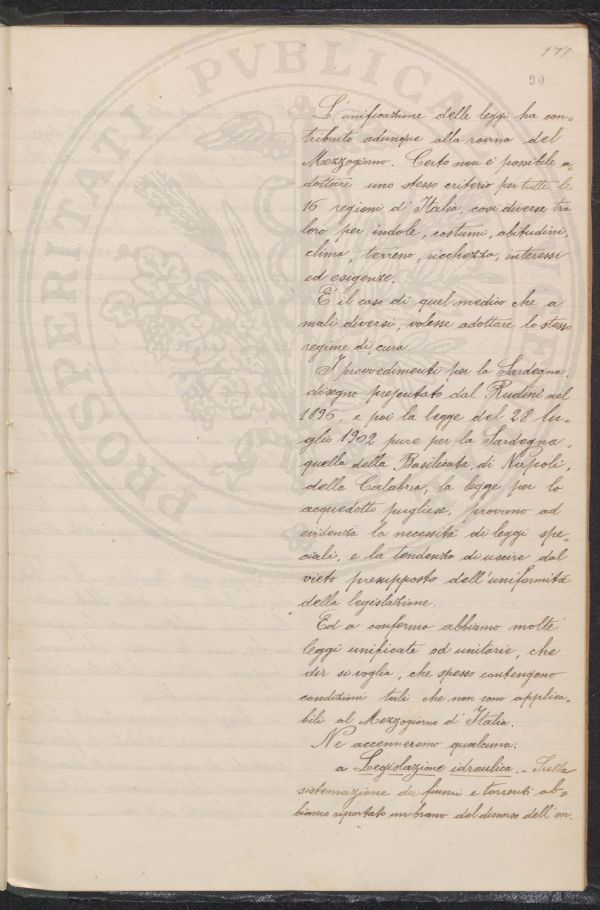 177
90
PROSPERITATI PVBLICAE
L'unificazione delle leggi ha con=
tribuito adunque alla rovina del
Mezzogiorno. Certo non è possibile a=
dottare uno stesso criterio per tutte le
16 regioni d'Italia, così diverse tra
loro per indole, costumi, abitudini,
clima, terreno, ricchezza, interessi
ed esigenze.
È il caso di quel medico che a
mali diversi, volesse adottare lo stesso
regime di cura
I provvedimenti per la Sardegna,
disegno presentato dal Rudinì nel
1896, e poi la legge del 28 lu=
glio 1902 pure per la Sardegna,
quella della Basilicata, di Napoli,
della Calabria, la legge per lo
acquedotto pugliese, provano ad
evidenza la necessità di leggi spe=
ciali, e la tendenza di uscire dal
vieto presupposto dell'uniformità
della legislazione.
Ed a conferma abbiamo molte
leggi unificate od unitarie, che
dir si voglia, che spesso contengono
condizioni tali che non sono applica=
bili al Mezzogiorno d'Italia.
Ne accenneremo qualcuna:
a Legislazione idraulica. - Sulla
sistemazione dei fiumi e torrenti ab=
biamo riportato un brano del discorso dell'on.